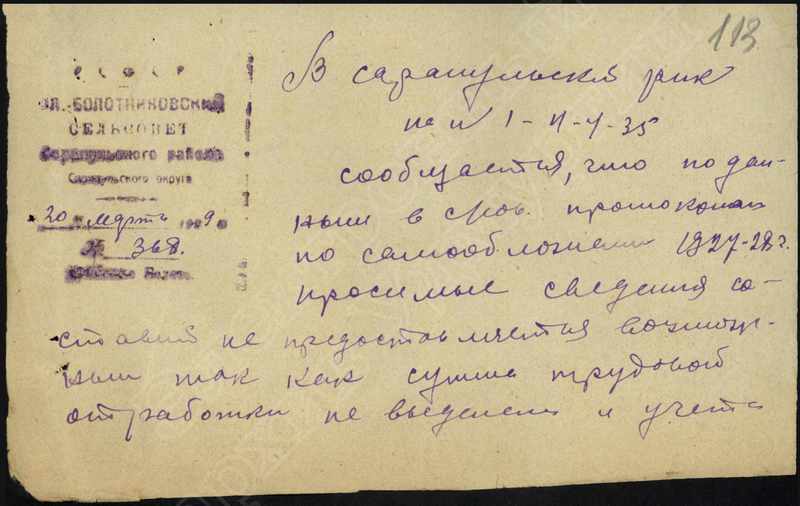 113
Р С Ф С Р
Ул.-БОЛОТНИКОВСКИЙ
СЕЛЬСОВЕТ
Сарапульского района
Сарапульского округа
20 марта 1929
№ 368.
В сарапульский рик
на № 1-11-4-35
сообщается, что по дан-
ным в сров. протоколах
по самообложению 1927-28 г.
просимые сведения со-
ставить не предоставляется возмож-
ным так как сумма трудовой
отработки не выделена и учета